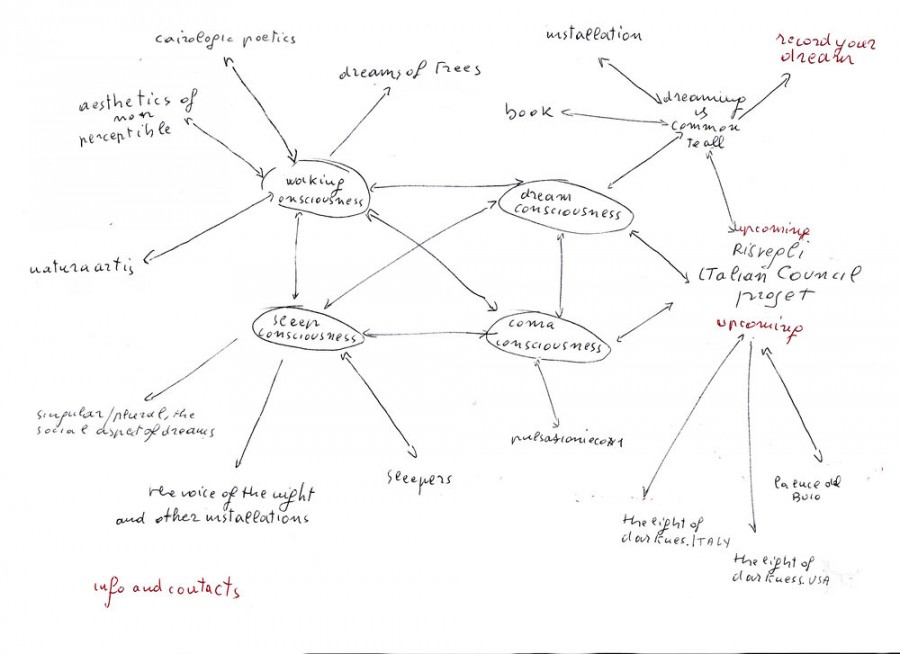 cairologic poetics
installation
record your
dream
dreams of Trees
aesthetics of
non
perceptible
book
dreaming
is
common
to all
waking
consciousness
dream
consciousness
upcoming
Risvegli
ITalian Council
proget
upcoming
natura artis
sleep
consciousness
coma
consciousness
singular/plural, the
social aspect of dreams
pulsazioni
sleepers
the voice of the night
and other installations
la luce del
BUIO
the light of
darknes. ITALY
the light of
darkness. USA
info and contacts